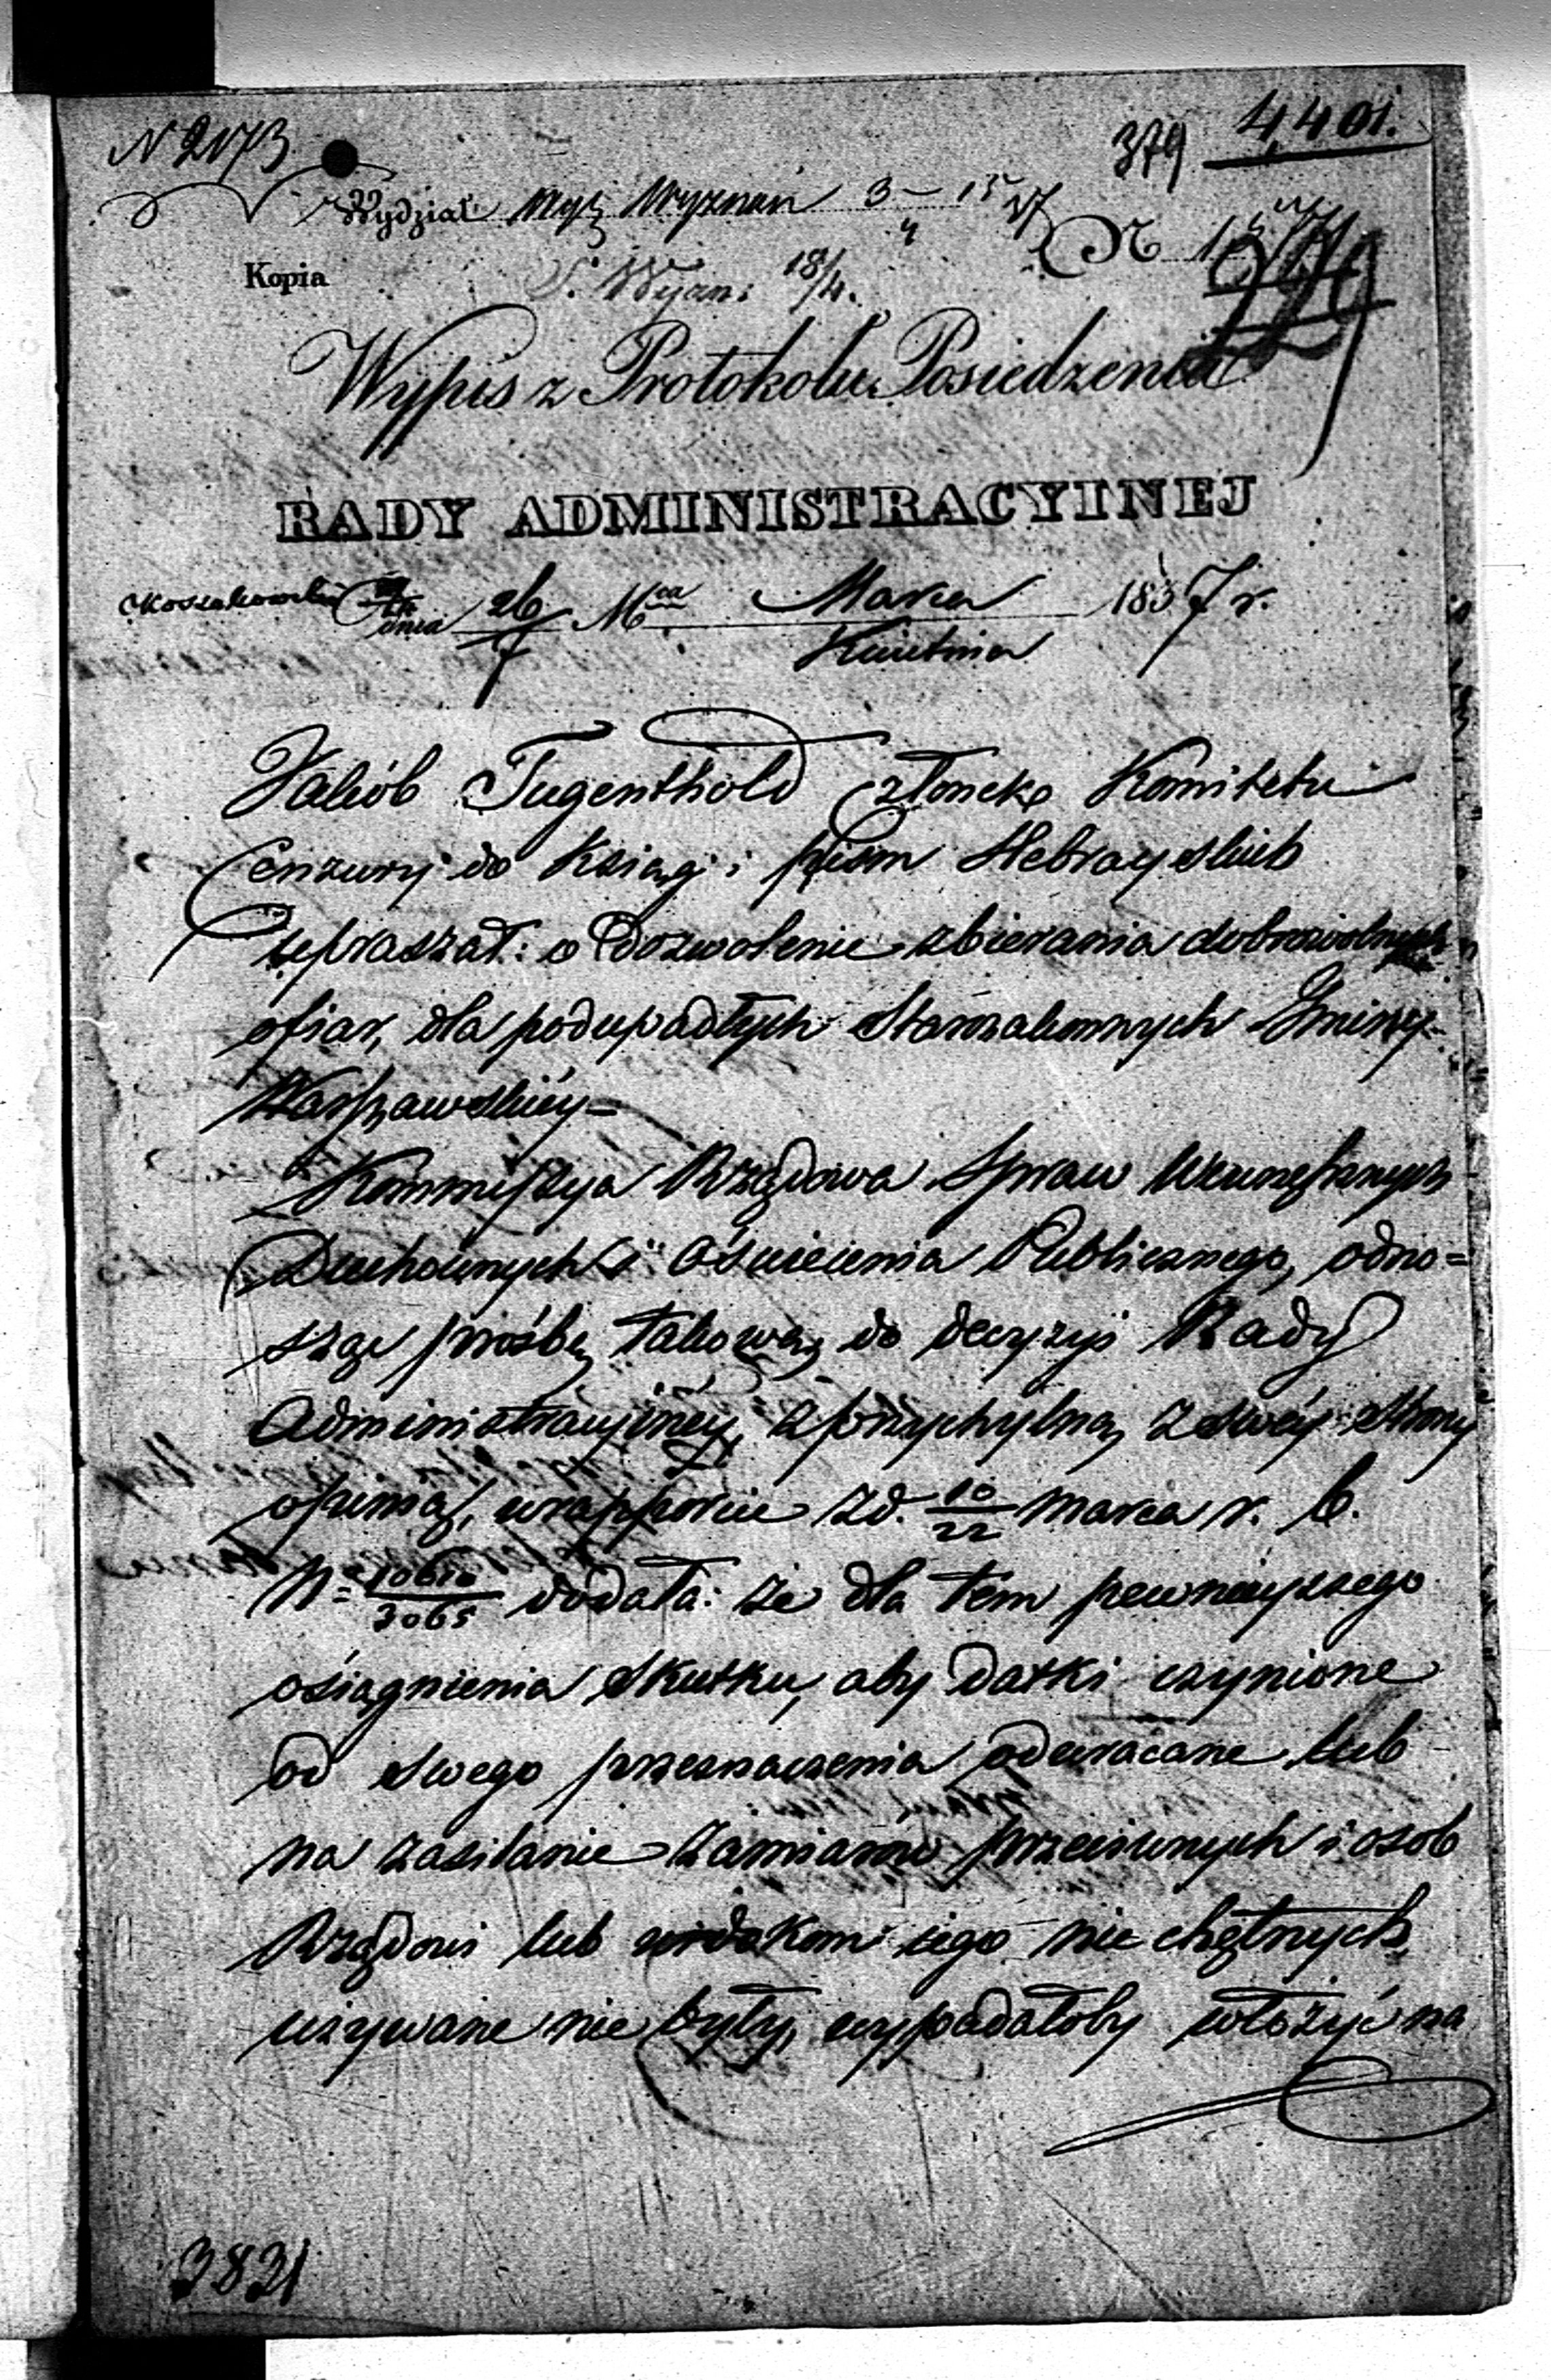 N 2173
379 4401.
Wydział Wyznań 3 – 15
Kopia
18/4.
Wypis z Protokołu Posiedzenia
RADY ADMINISTRACYINEJ
dnia 26/7 Mca Marca 1837 r.
Kwietnia
Jakób Tugenthold Członek Komitetu
Cenzury do Ksiąg i pism Hebrayskich
upraszał: o dozwolenie zbierania dobrowolnych
ofiar, dla podupadłych Starozakonnych Gminy
Warszawskiéy –
Kommissya Rządowa Spraw Wewnętrznych
Duchownych i Oświecenia Publicznego, odno=
sząc prośbę takową do decyzyi Rady
Administracyinéy, z przychylną z swéy strony
opinią, w rapporcie z d. 10/22 Marca r. b.
N= 10610/3065 dodała: że dla tem pewnieyszego
osiągnienia skutku, aby datki czynione
od swego przeznaczenia odwracane lub
na zasilanie zamiarów przeciwnych i osob
Rządowi lub widokom iego nie chętnych
używane nie były, wypadałoby włożyć na
3831